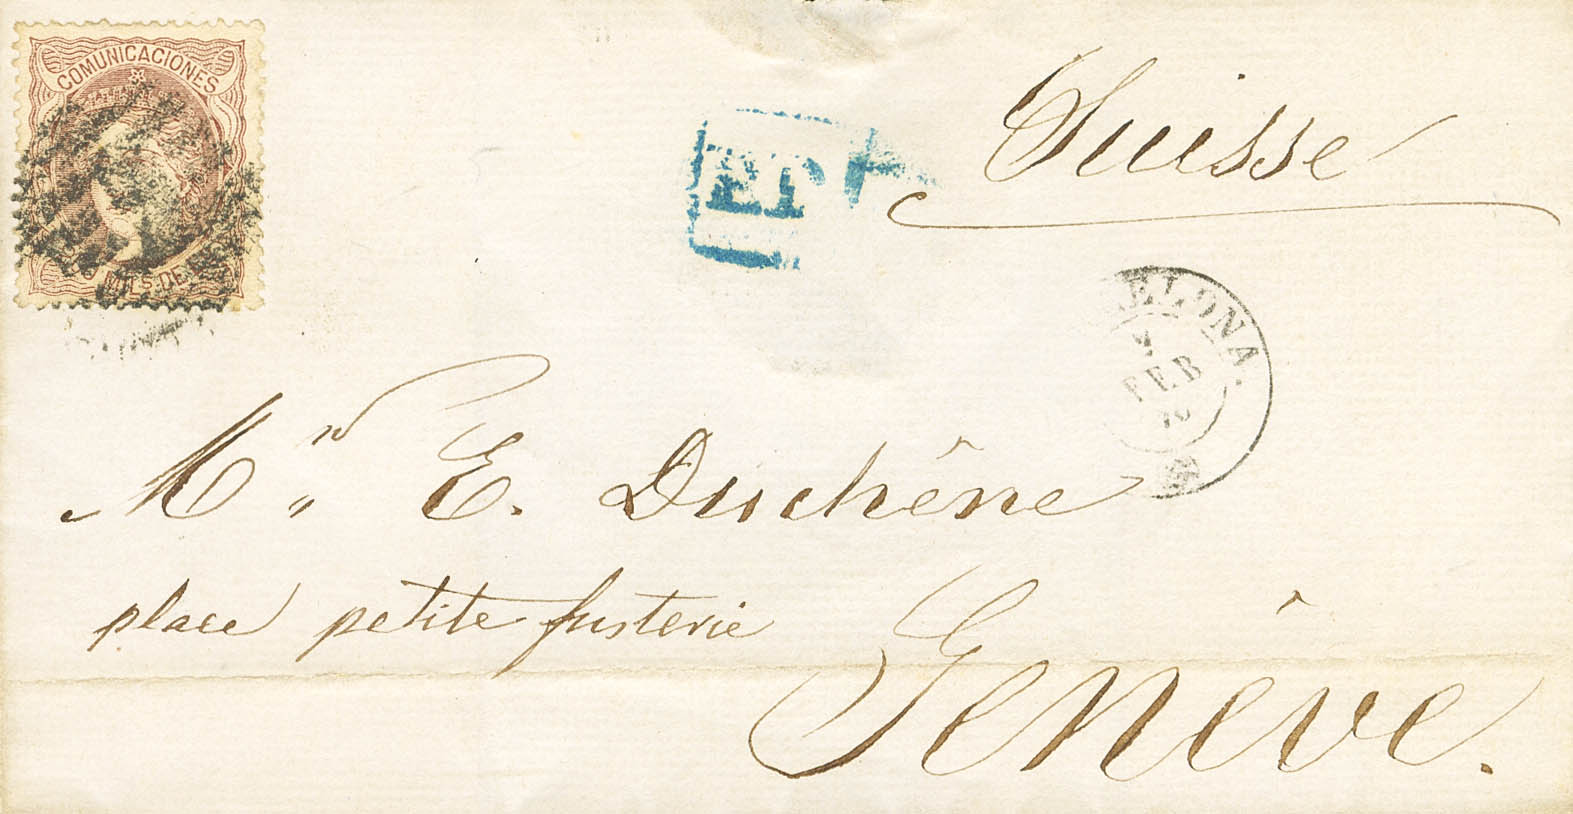 COMUNICACIONES
MILS. DE
PD
Suisse
FEB
Mr. E. Duchêne
place petite fusterie
Genève.